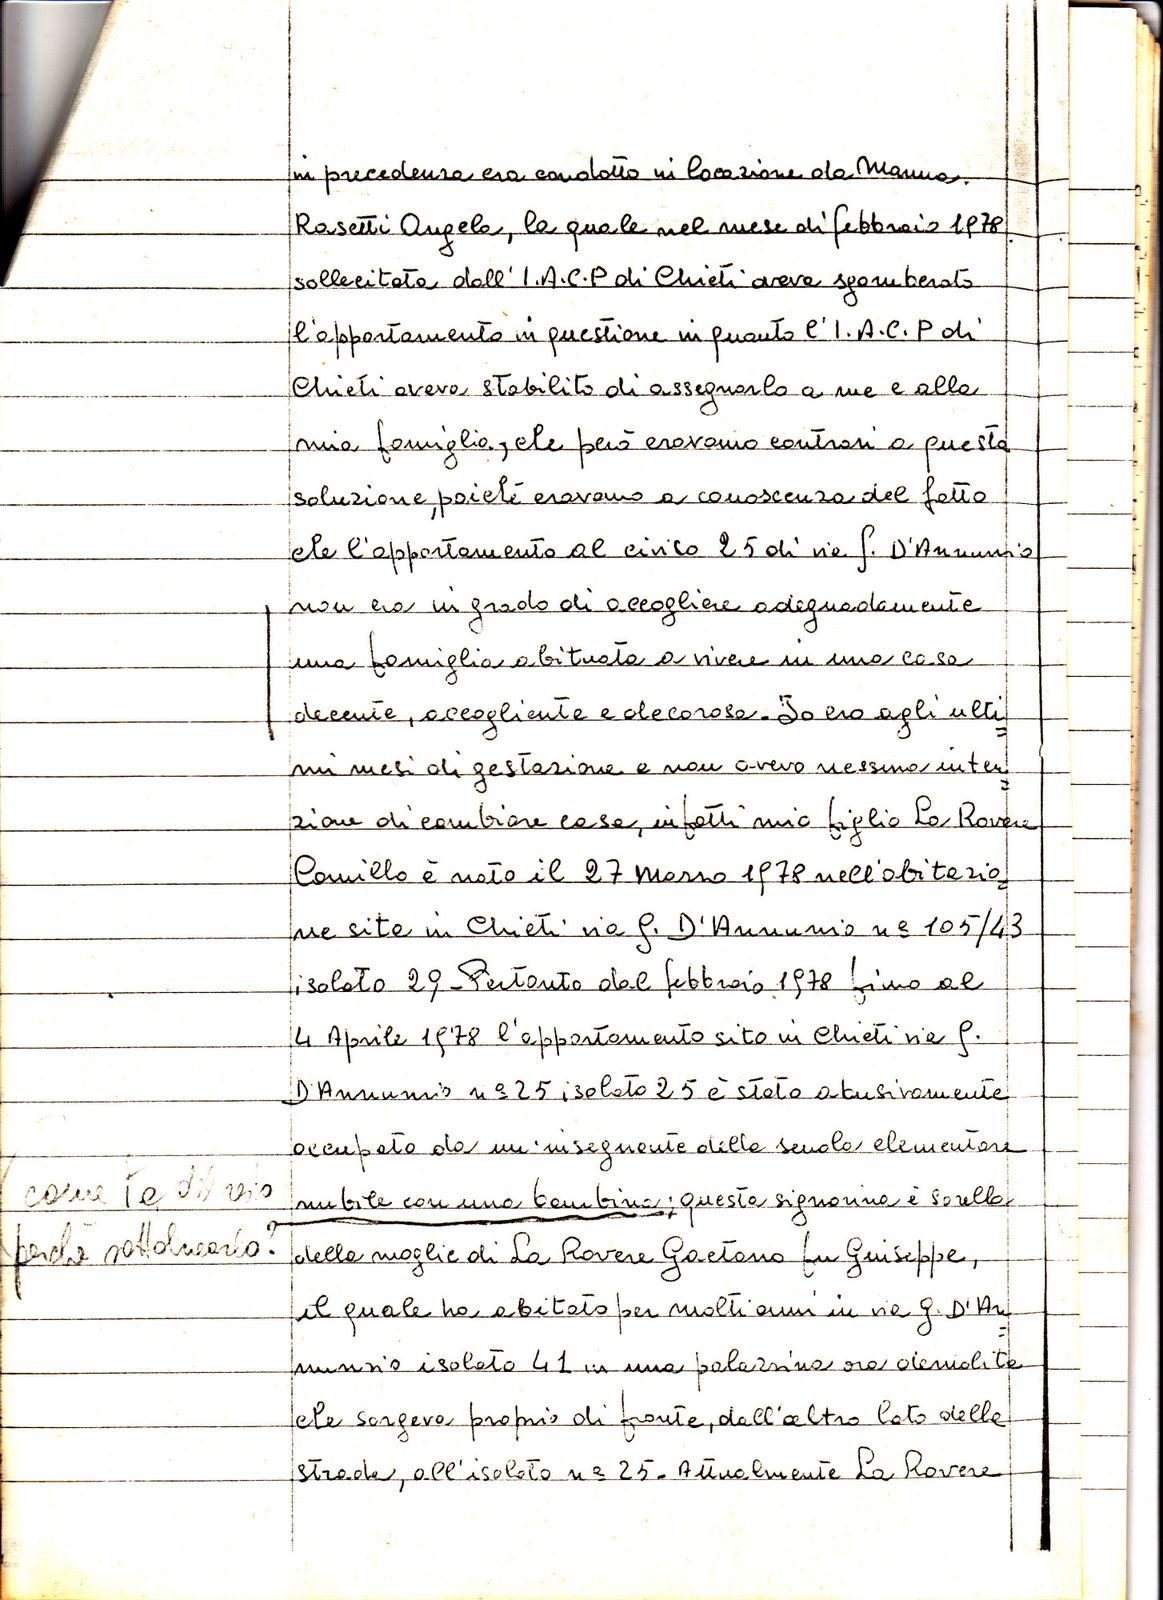 in precedenza era condotto in locazione da Manna
Rasetti Angela, la quale nel mese di febbraio 1978
sollecitata dall' I.A.C.P di Chieti aveva sgomberato
l'appartamento in questione in quanto l' I.A.C.P di
Chieti aveva stabilito di assegnarlo a me e alla
mia famiglia, che però eravamo contrari a questa
soluzione, poichè eravamo a conoscenza del fatto
che l'appartamento al civico 25 di via G. D'Annunzio
non era in grado di accogliere adeguadamente
una famiglia abituata a vivere in una casa
decente, accogliente e decorosa. Io ero agli ulti=
mi mesi di gestazione e non avevo nessuna inten=
zione di cambiare casa, infatti mio figlio La Rovere
Camillo è nato il 27 Marzo 1978 nell'abitazio=
ne sita in Chieti via G. D'Annunzio nº 105/43
isolato 29 - Pertanto dal febbraio 1978 fino al
4 Aprile 1978 l'appartamento sito in Chieti via G.
D'Annunzio nº 25 isolato 25 è stato abusivamente
occupato da un'insegnante della scuola elementare
nubile con una bambina; questa signorina è sorella
della moglie di La Rovere Gaetano fu Guiseppe,
il quale ha abitato per molti anni in via G. D'An=
nunzio isolato 41 in una palazzina ora demolita
che sorgeva proprio di fronte, dall'altro lato della
strada, all'isolato nº 25. Attualmente La Rovere
come te
perchè sottolinearlo?